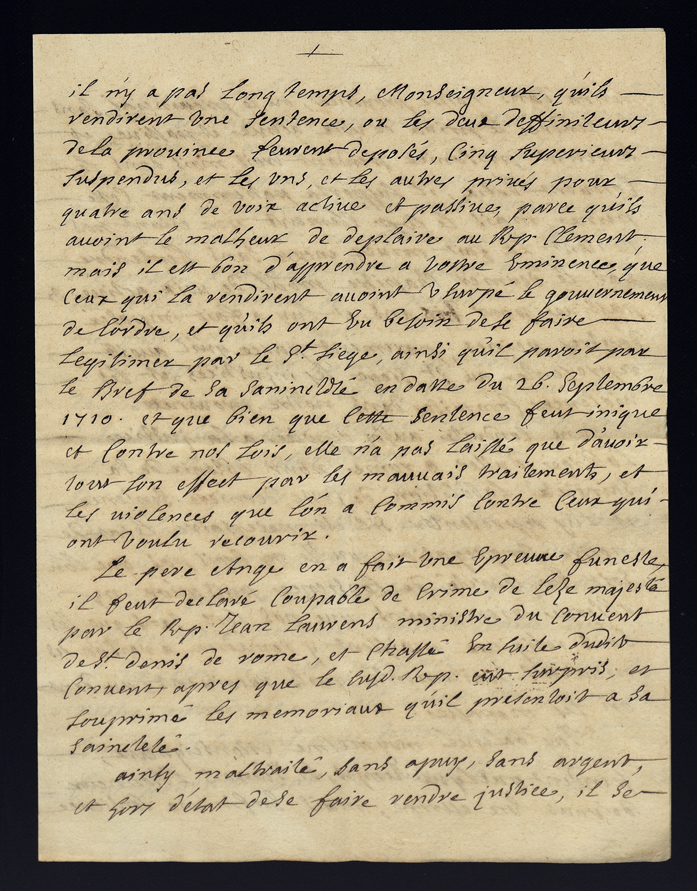 il n'y a pas Long temps, Monseigneur, qu'ils
rendirent Une Sentence, ou les deux deffiniteurs
dela province feurent deposés, Cinq Superieurs
Suspendus, et les uns, et les autres privés pour
quatre ans de voix active et passive, parce qu'ils
avoint le malheur de deplaire au Rp. Clement.
mais il est bon d'apprendre a Vostre Eminence, que
Ceux qui la rendirent avoint Usurpé le gouvernement
de l'ordre, et qu'ils ont Eu besoin dese faire
Legitimer par le St. siege, ainsi qu'il paroit par
le Bref de Sa Saincteté en datte du 26. Septembre
1710. et que bien que Cette Sentence feut inique
et Contre nos Lois, elle n'a pas Laissé que d'avoir
tout son effect par les mauvais traitements, et
les violences que l'on a Commis Contre Ceux qui
ont Voulu recourir.
Le pere Ange en a fait Une Epreuve funeste,
il feut declaré Coupable de Crime de leze majesté
par le Rp. Jean Laurens ministre du Convent
de St. denis de rome, et Chassé Ensuite dudit
Convent, apres que le susd. Rp. eut surpris, et
souprimé les memoriaux qu'il presentoit a Sa
Saincteté.
ainsy maltraité, sans apuy, sans argent,
et hors d'état dese faire rendre justice, il se